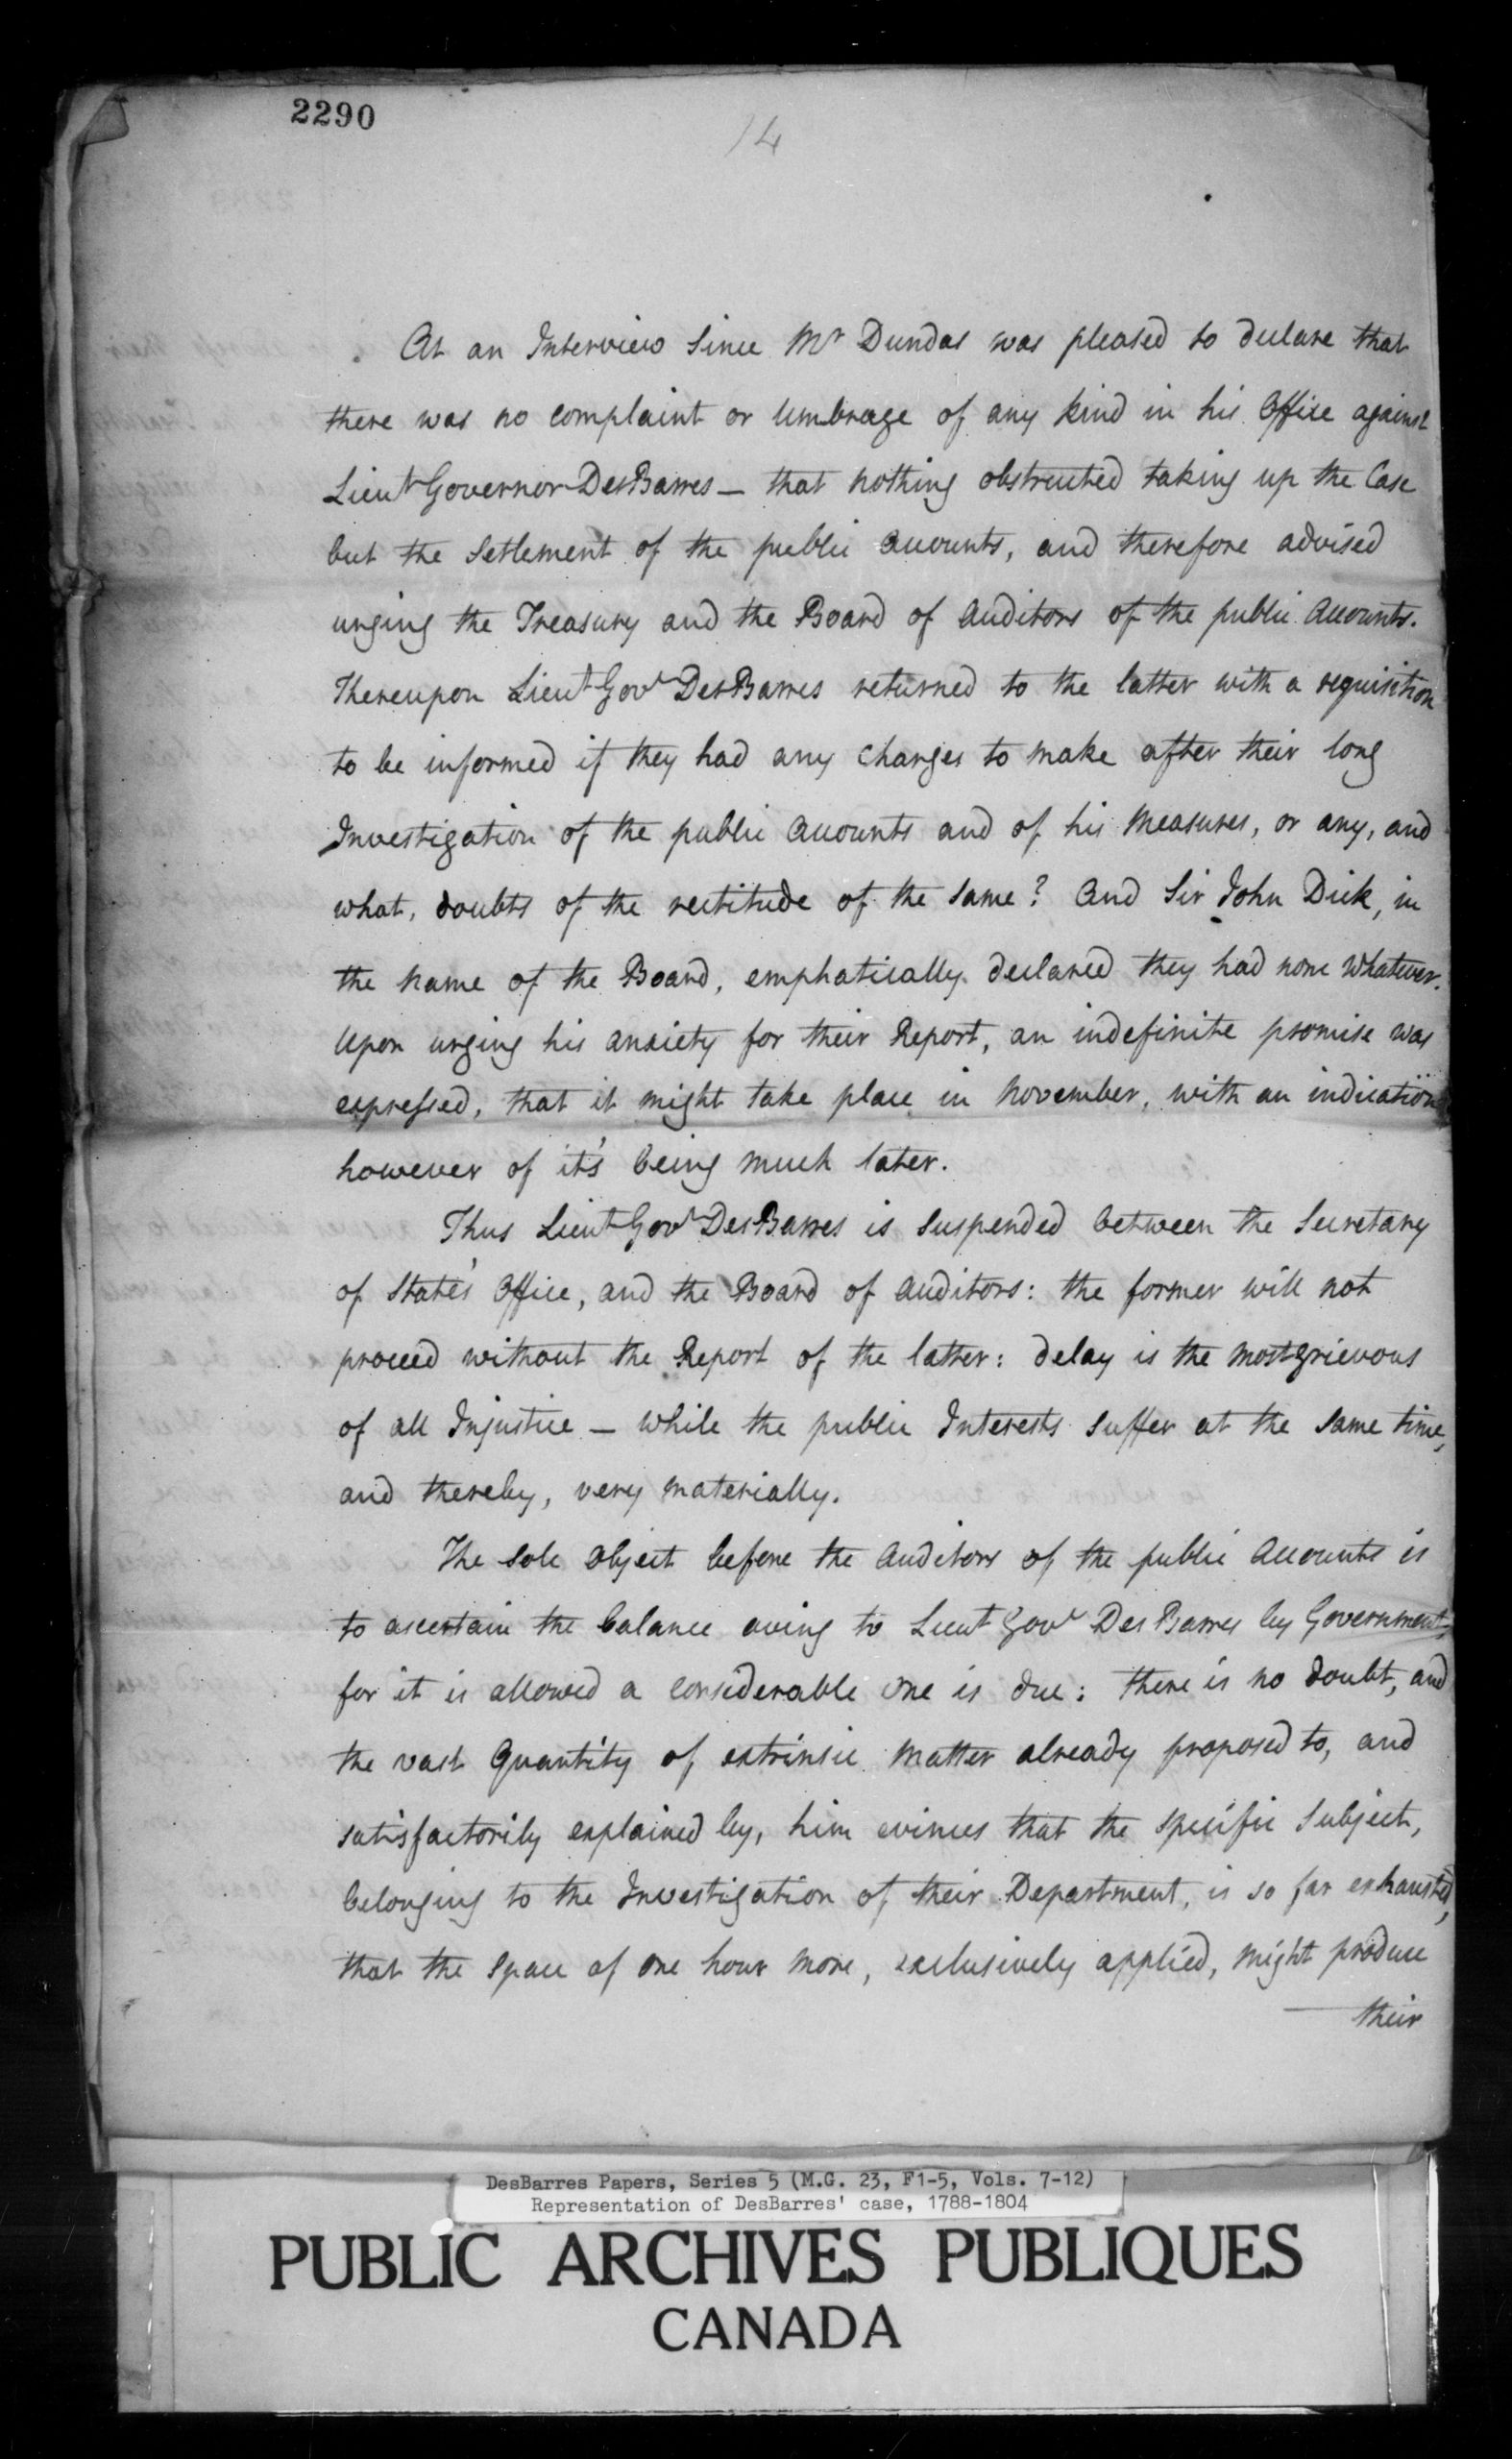 2290
14
At an Interview since Mr Dundas was pleased to declare that
there was no complaint or Umbrage of any kind in his Office against
Lieut Governor DesBarres — that nothing obstructed taking up the Case
but the Setlement of the public Accounts, and therefore advised
urging the Treasury and the Board of Auditors of the public Accounts.
Thereupon Lieut Govr DesBarres returned to the latter with a requisition
to be informed if they had any Charges to make after their long
Investigation of the public Accounts and of his Measures, or any, and
what, doubts of the rectitude of the same? And Sir John Dick, in
the name of the Board, emphatically declared they had none whatever.
Upon urging his anxiety for their Report, an indefinite promise was
expressed, that it might take place in November, with an indication
however of it's being much later.
Thus Lieut Govr DesBarres is suspended between the Secretary
of State's Office, and the Board of Auditors: the former will not
proceed without the Report of the latter: delay is the most grievous
of all Injustice — while the public Interests suffer at the same time,
and thereby, very materially.
The sole Object before the Auditors of the public Accounts is
to ascertain the balance owing to Lieut Govr DesBarres by Government,
for it is allowed a considerable one is due: there is no doubt, and
the vast Quantity of extrinsic matter already proposed to, and
satisfactorily explained by, him evinces that the specific Subject,
belonging to the Investigation of their Department, is so far exhausted,
that the space of one hour more, exclusively applied, might produce
their
DesBarres Papers, Series 5 (M.G. 23, F1-5, Vols. 7-12)
Representation of DesBarres' case, 1788-1804
PUBLIC ARCHIVES PUBLIQUES
CANADA